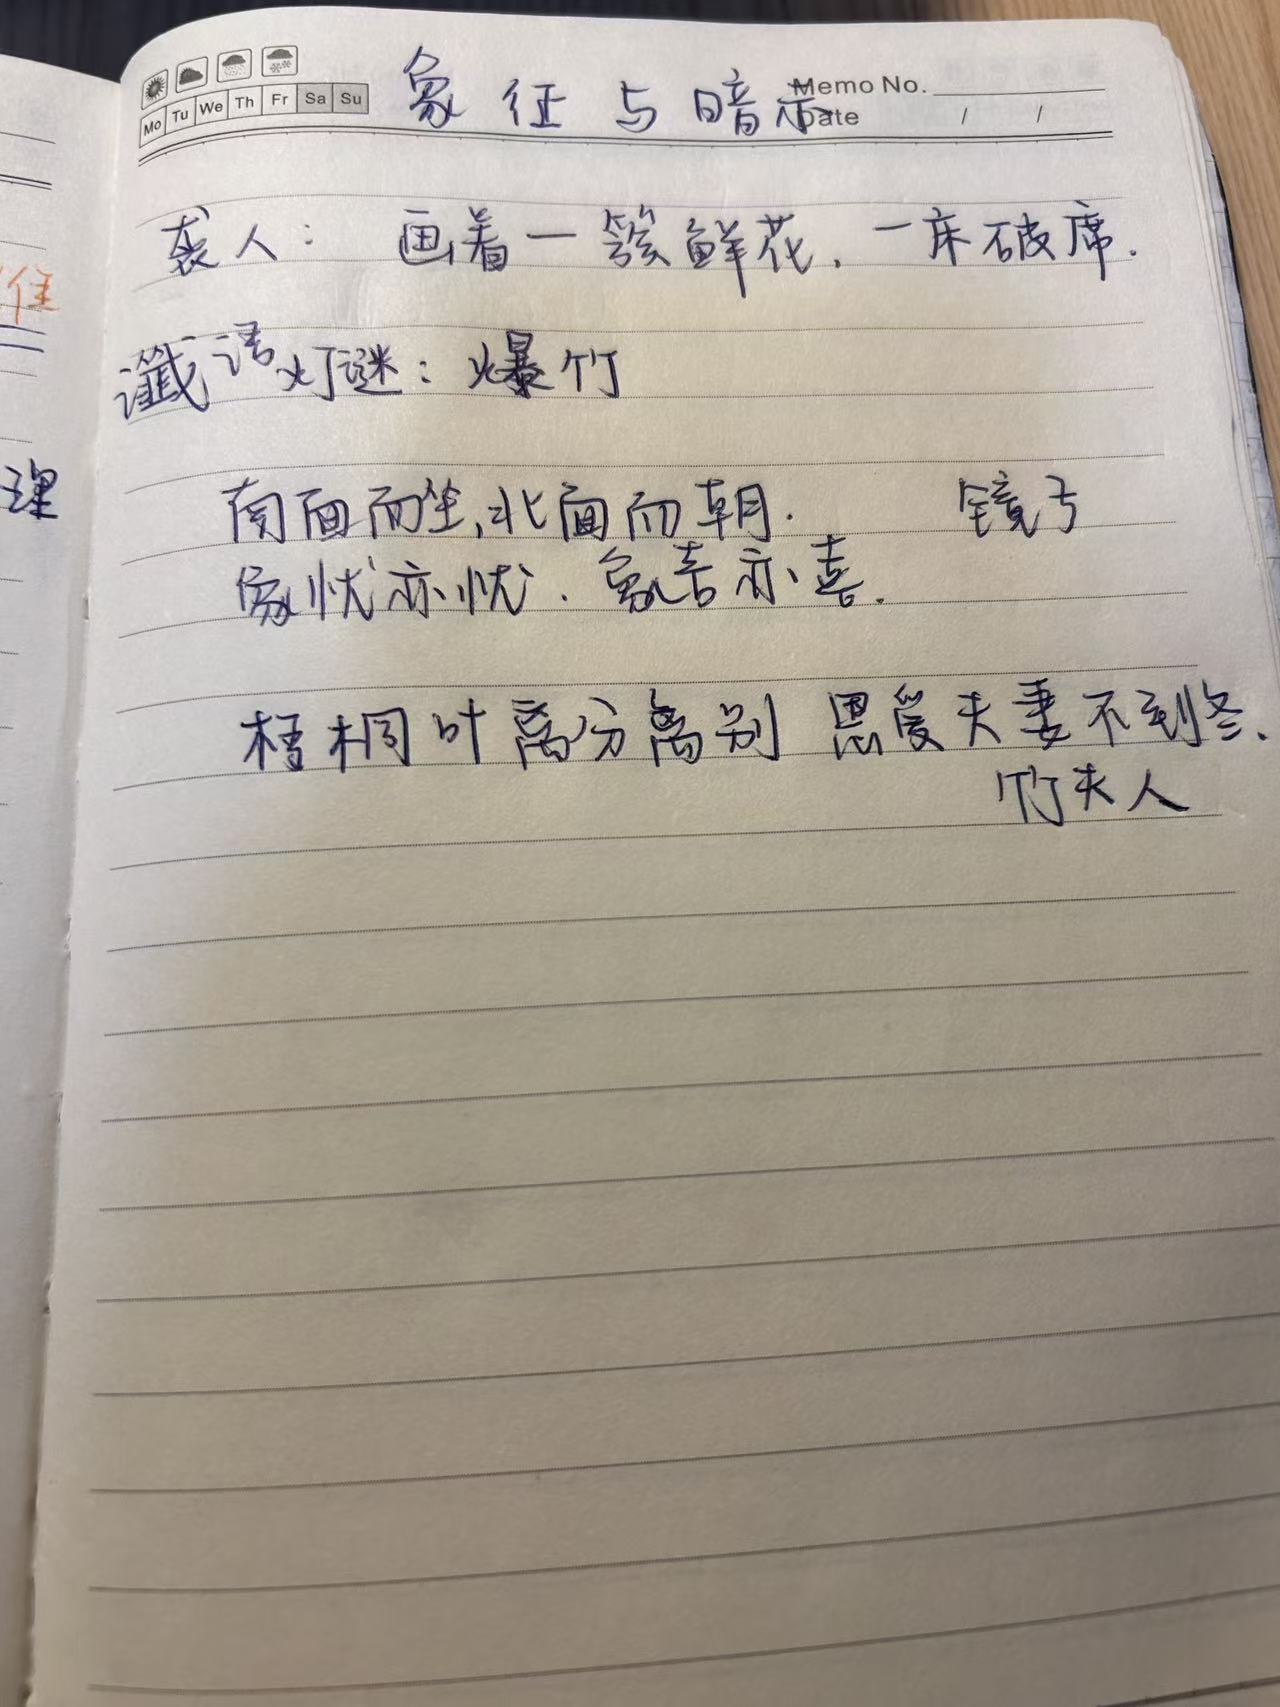 象征与暗示
Memo No.
Date / /
Mo Tu We Th Fr Sa Su
袭人：画着一簇鲜花，一床破席.
谶语灯谜：爆竹
南面而坐，北面而朝. 镜子
象忧亦忧. 象喜亦喜.
梧桐叶离分离别 恩爱夫妻不到冬.
竹夫人
住
理